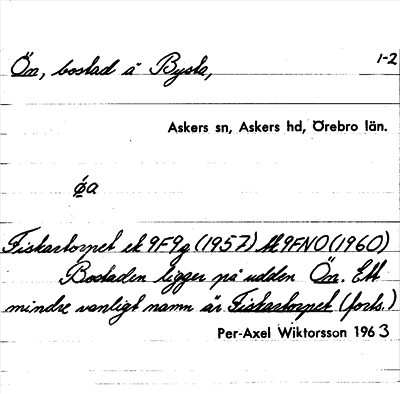 1-2
Ön, bostad å Bysta,
Askers sn, Askers hd, Örebro län.
ǿa
Fiskartorpet ek 9F9g (1957) tk 9FNO (1960)
Bostaden ligger på udden Ön. Ett
mindre vanligt namn är Fiskartorpet (forts.)
Per-Axel Wiktorsson 1963